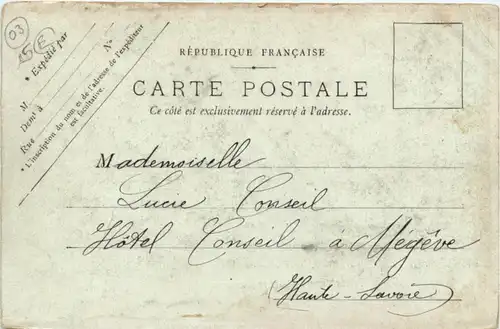 03
* Expédié par
M
Demt à
Rue
N°
* L'inscription du nom et de l'adresse de l'expéditeur
est facultative.
RÉPUBLIQUE FRANÇAISE
CARTE POSTALE
Ce côté est exclusivement réservé à l'adresse.
Mademoiselle
Lucie Conseil
Hôtel Conseil à Mégève
(Haute-Savoie)